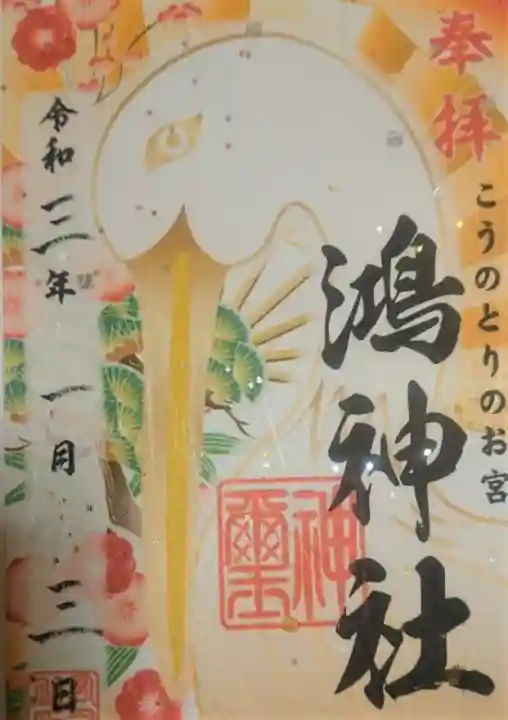 奉拝
こうのとりのお宮
鴻神社
神璽
令和三年一月三日